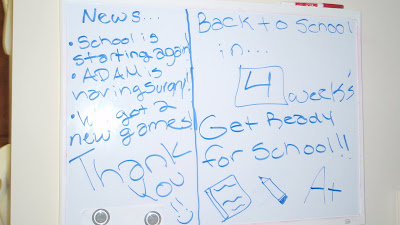 News...
• School is
starting again
• ADAM is
having Surgry!!
• got 2
new games!
Thank
You
Back to School
in...
4
week's
Get Ready
for School!!
A+